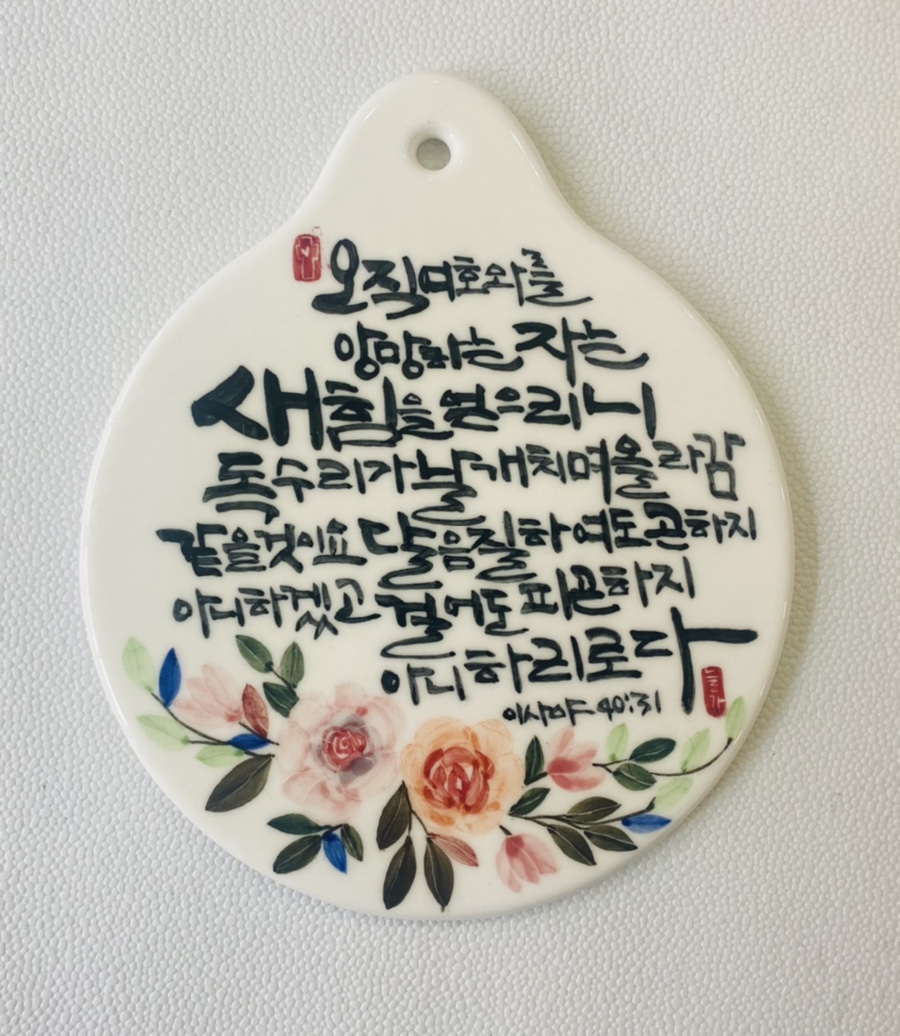 오직 여호와를
앙망하는 자는
새 힘을 얻으리니
독수리가 날개치며 올라감
같을 것이요 달음질하여도 곤하지
아니하겠고 걸어도 피곤하지
아니하리로다
이사야 40:31